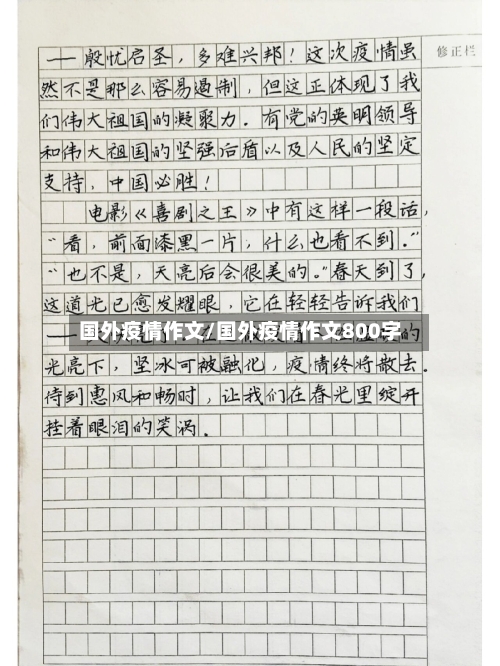 ——殷忧启圣，多难兴邦！这次疫情虽
修正栏
然不是那么容易遏制，但这正体现了我
们伟大祖国的凝聚力。有党的英明领导
和伟大祖国的坚强后盾以及人民的坚定
支持，中国必胜！
电影《喜剧之王》中有这样一段话，
“看，前面漆黑一片，什么也看不到。”
“也不是，天亮后会很美的。”春天到了，
这道光已愈发耀眼，它在轻轻告诉我们
国外疫情作文/国外疫情作文800字
光亮下，坚冰可被融化，疫情终将散去。
待到惠风和畅时，让我们在春光里绽开
挂着眼泪的笑涡。